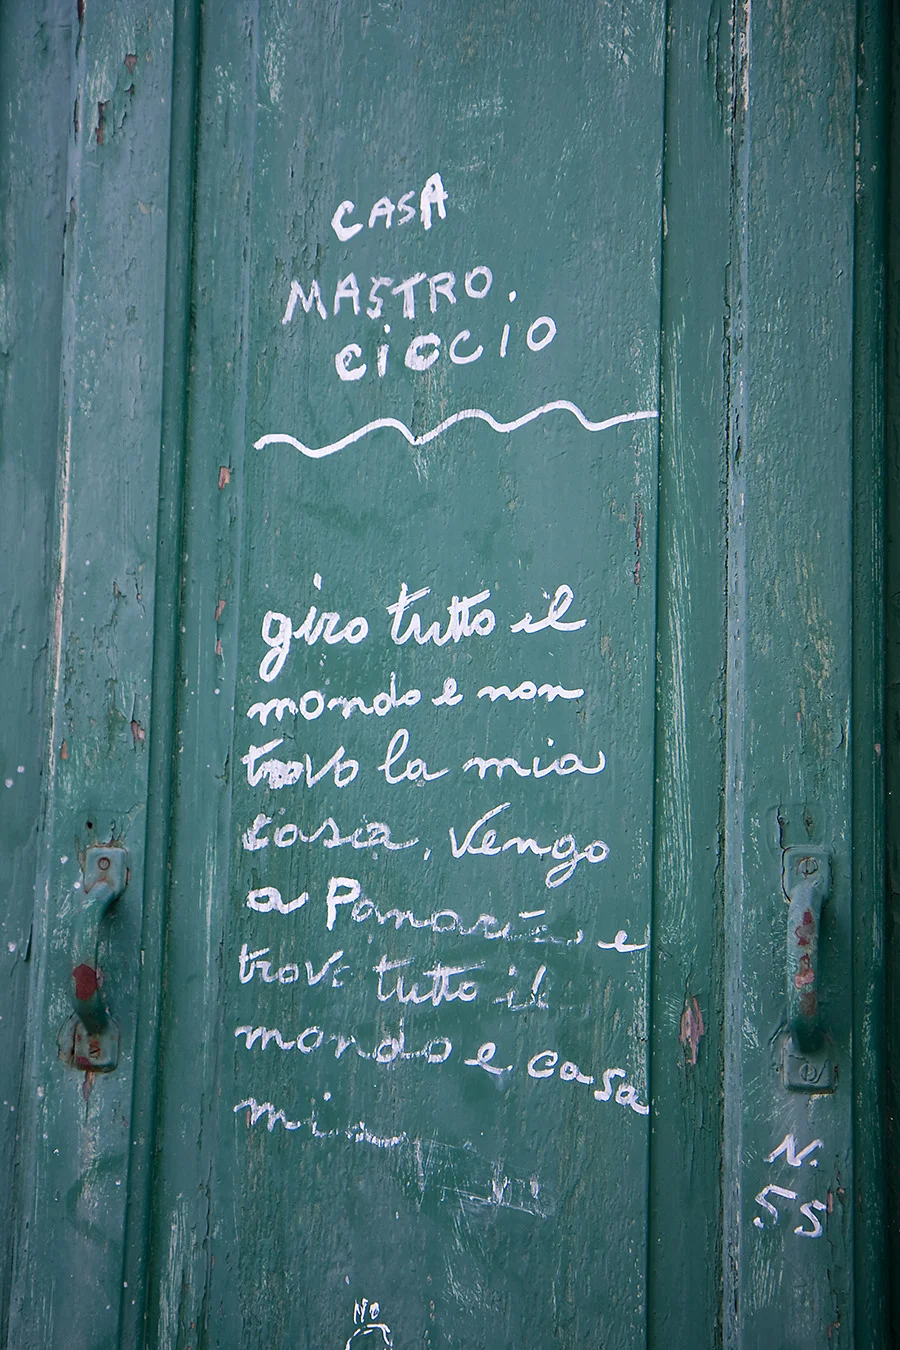 CASA
MASTRO.
CIOCIO
giro tutto il
mondo e non
trovo la mia
casa, vengo
a e
trovo tutto il
mondo e casa
mia
N.
55
No